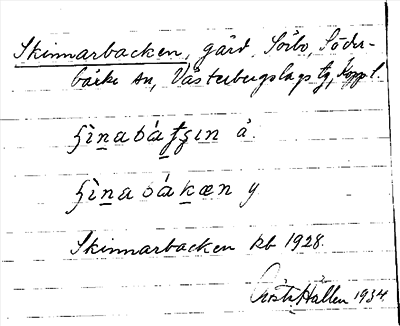 Skinnarbacken, gård, Sörbo, Söder-
bärke sn, Västerbergslags fg, Kopp. l.
ʃìnabáʈʂɪn ä.
ʃìnabákæn y
Skinnarbacken kb 1928.
Gösta Hallen 1934